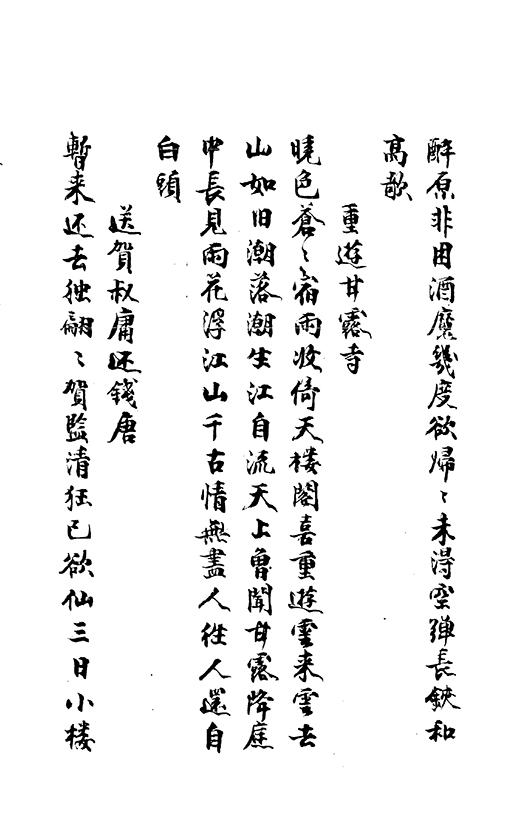 醉原非因酒魔幾度欲歸〻未得空弹長鋏和
高歌
重遊甘露寺
曉色蒼〻宿雨收倚天楼閣喜重遊雲来雲去
山如旧潮落潮生江自流天上曾聞甘露降庭
中長見雨花浮江山千古情無盡人往人還自
白頭
送賀叔庸还錢唐
暫来还去独翩〻賀監清狂已欲仙三日小楼